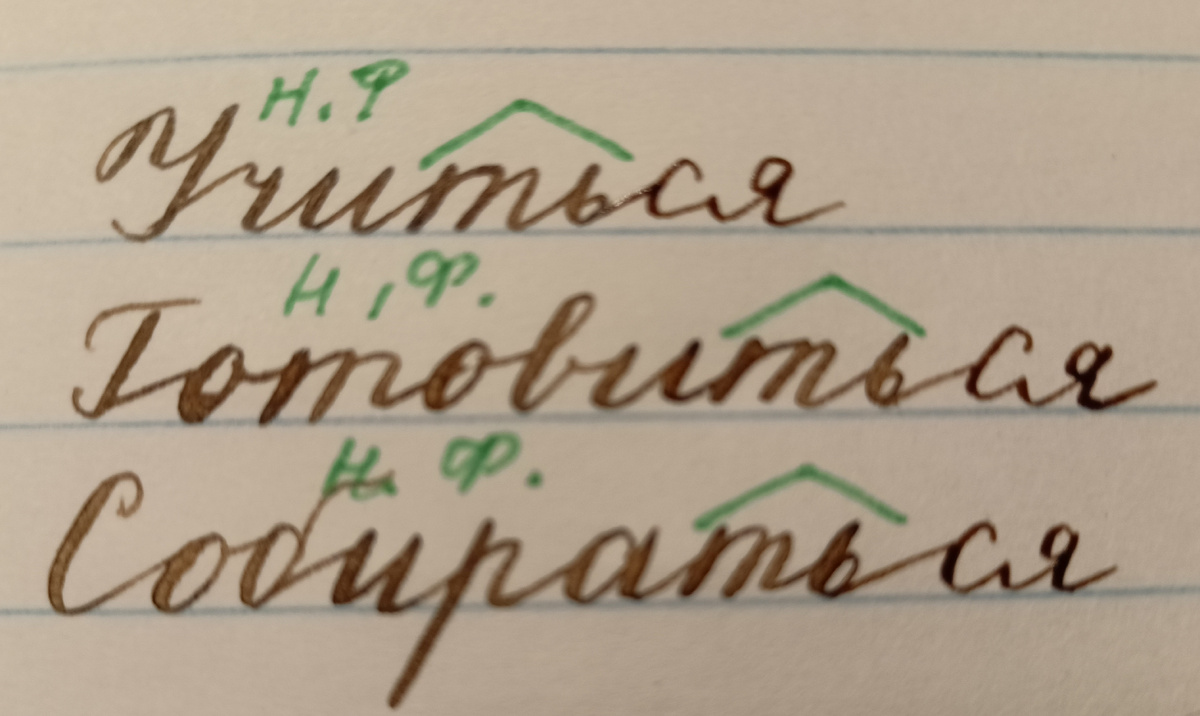 н.ф
Учиться
н.ф.
Готовиться
н. ф.
Собираться